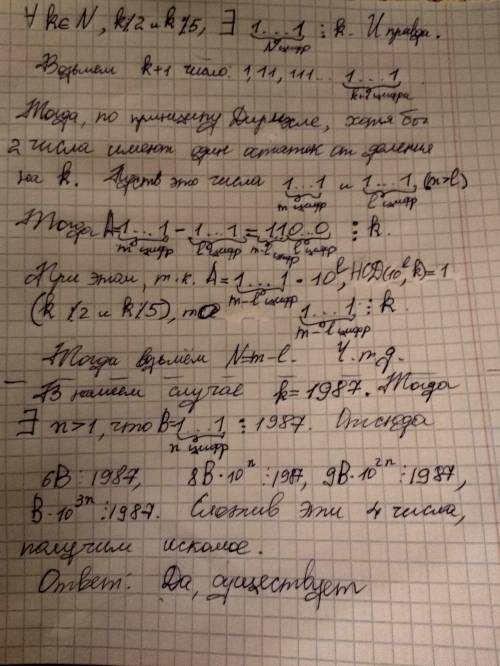 ∀ k∈N, k⋮̸2 и k⋮̸5, ∃ 1...1 ⋮ k. И правда.
N цифр
Возьмём k+1 число: 1, 11, 111... 1...1
k+1 цифра
Тогда, по принципу Дирихле, хотя бы
2 числа имеют один остаток от деления
на k. Пусть это числа 1...1 и 1...1, (m>l)
m цифр l цифр
Тогда A=1...1 - 1...1 = 110...0 ⋮ k.
m цифр l цифр m-l цифр l цифр
При этом, т.к. A = 1...1 · 10^l, НОД(10^l, k)=1
m-l цифр
(k⋮̸2 и k⋮̸5), то 1...1 ⋮ k
m-l цифр
Тогда возьмём N=m-l. Ч.т.д.
В нашем случае k=1987. Тогда
∃ n>1, что B=1...1 ⋮ 1987. Отсюда
n цифр
6B ⋮ 1987, 8B·10^n ⋮ 1987, 9B·10^2n ⋮ 1987,
B·10^3n ⋮ 1987. Сложив эти 4 числа,
получим искомое.
Ответ: Да, существует